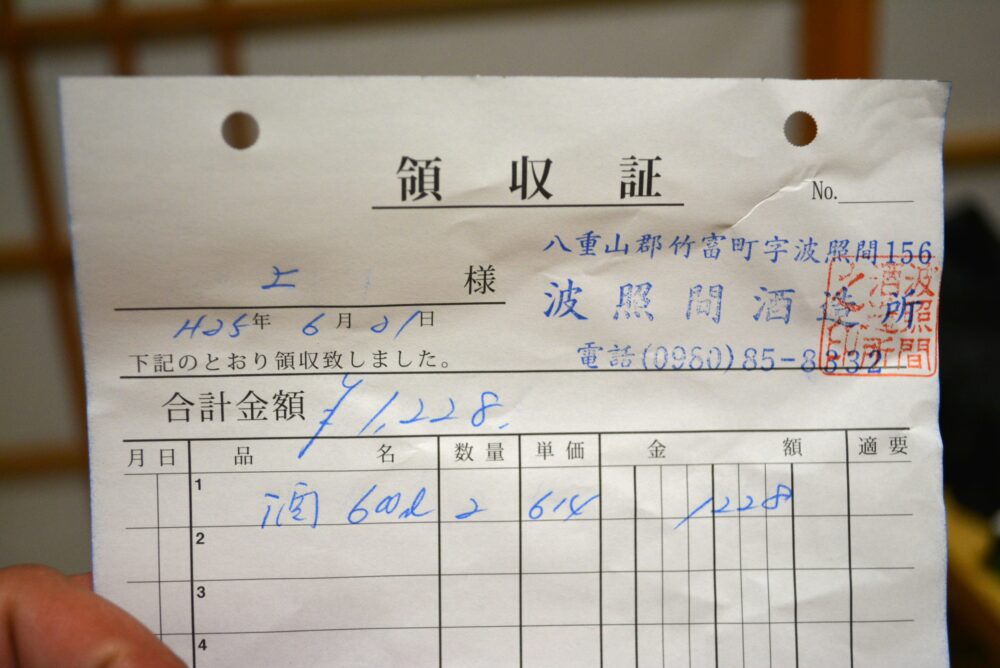 領収証
No.
八重山郡竹富町字波照間156
上 様
波照間酒造所
波照間酒造所之印
H25年 6月21日
電話(0980)85-8332
下記のとおり領収致しました。
合計金額 ¥1,228.
月日 品名 数量 単価 金額 適要
1 酒 600ml 2 614 1228
2
3
4